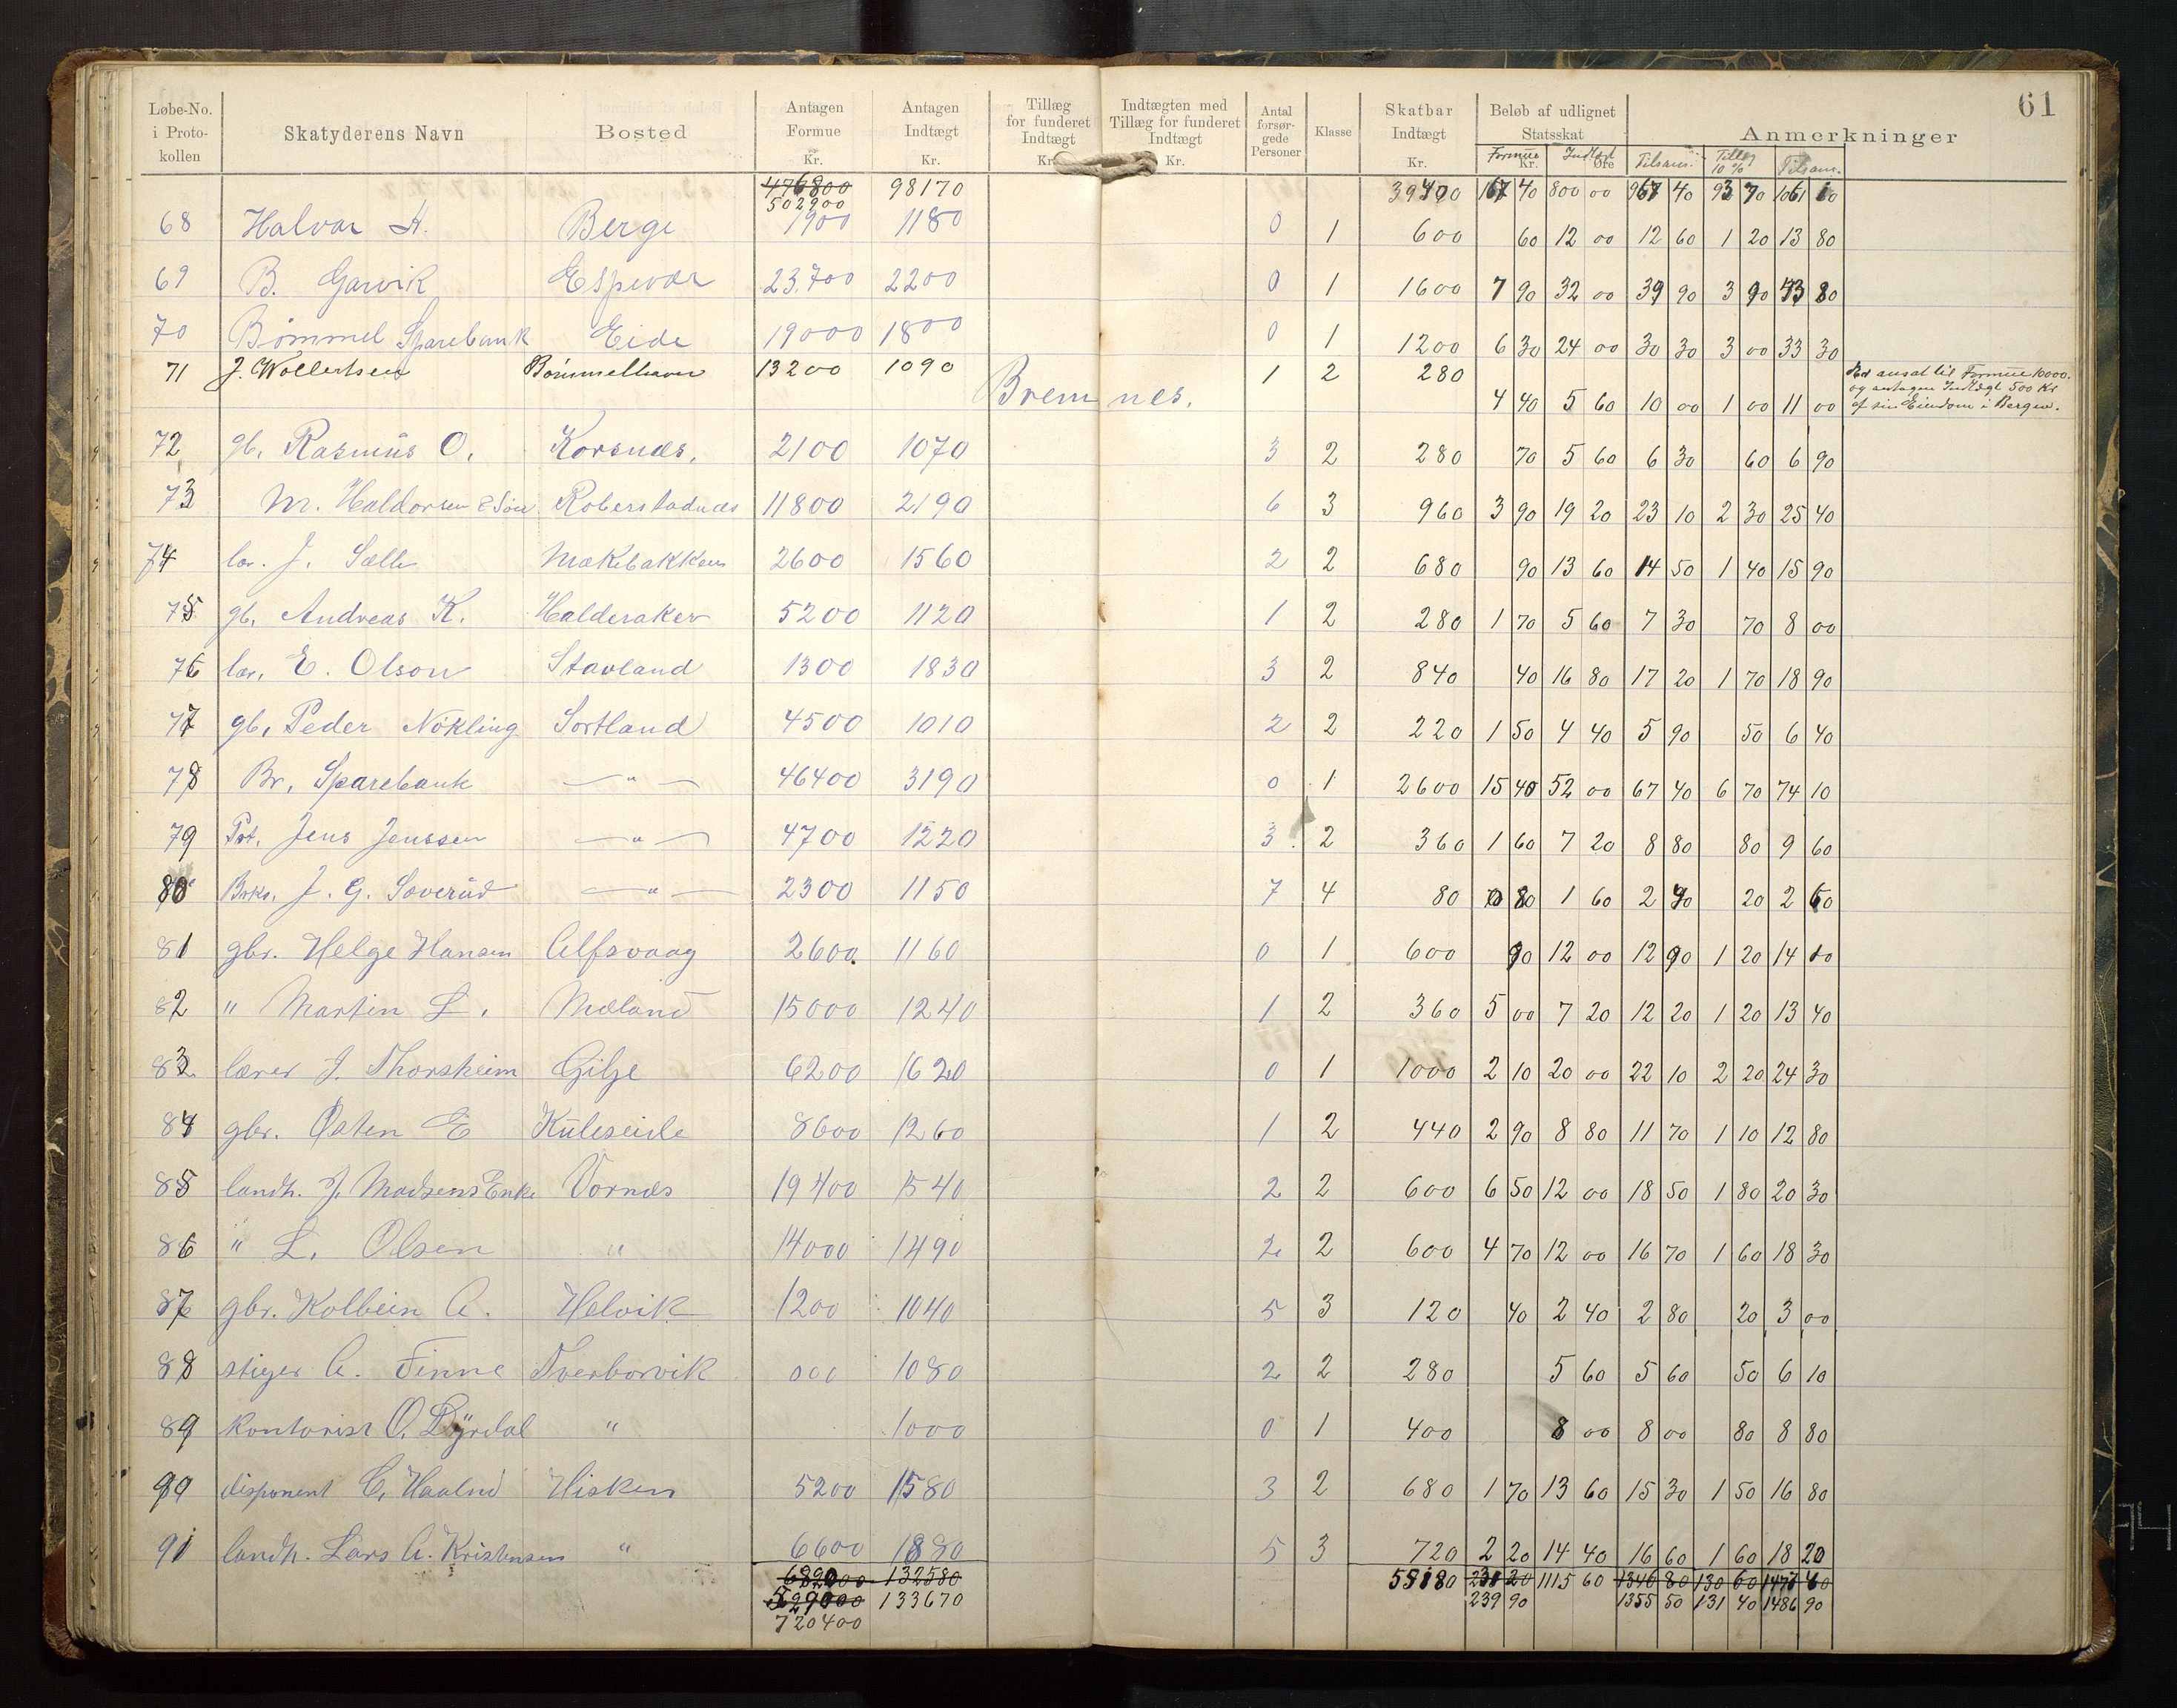 61
Løbe-No. i Protokollen | Skatyderens Navn | Bosted | Antagen Formue Kr. | Antagen Indtægt Kr. | Tillæg for funderet Indtægt Kr. | Indtægten med Tillæg for funderet Indtægt Kr. | Antal forsørgede Personer | Klasse | Skatbar Indtægt Kr. | Beløb af udlignet Statsskat Kr. Øre | Anmerkninger
Formue | Indtægt | Tilsam. | Tillæg 10 % | Tilsam.
476800 98170 39490 167 40 800 00 967 40 93 70 1061 10
502900
68 Halvar A. Berge 1900 1180 0 1 600 60 12 00 12 60 1 20 13 80
69 B. Garvik Espevær 23700 2200 0 1 1600 7 90 32 00 39 90 3 90 43 80
70 Bömmel Sparebank Eide 19000 1800 0 1 1200 6 30 24 00 30 30 3 00 33 30
71 J. Wollertsen Bömmelhavn 13200 1090 1 2 280 4 40 5 60 10 00 1 00 11 00 ansat til Formue 10000. og antagen Indtægt 500 Kr af sin Eiendom i Bergen.
Bremnes.
72 gb. Rasmus O. Korsnæs. 2100 1070 3 2 280 70 5 60 6 30 60 6 90
73 M. Haldorsen & Søn Roberstadnæs 11800 2190 6 3 960 3 90 19 20 23 10 2 30 25 40
74 lær. J. Sælle Mækebakken 2600 1560 2 2 680 90 13 60 14 50 1 40 15 90
75 gb. Andreas K. Halderaker 5200 1120 1 2 280 1 70 5 60 7 30 70 8 00
76 lær. E. Olson Stavland 1300 1830 3 2 840 40 16 80 17 20 1 70 18 90
77 gb. Peder Nökling Sortland 4500 1010 2 2 220 1 50 4 40 5 90 50 6 40
78 Br. Sparebank —"— 46400 3190 0 1 2600 15 40 52 00 67 40 6 70 74 10
79 Pst. Jens Jenssen —"— 4700 1220 3 2 360 1 60 7 20 8 80 80 9 60
80 Brks. J. G. Soverud —"— 2300 1150 7 4 80 80 1 60 2 40 20 2 60
81 gbr. Helge Hansen Alfsvaag 2600 1160 0 1 600 90 12 00 12 90 1 20 14 10
82 " Martin L. Mæland 15000 1240 1 2 360 5 00 7 20 12 20 1 20 13 40
83 lærer J. Thorsheim Gilje 6200 1620 0 1 1000 2 10 20 00 22 10 2 20 24 30
84 gbr. Østen E Kuleseide 8600 1260 1 2 440 2 90 8 80 11 70 1 10 12 80
85 landh. J. Madsens Enke Vornæs 19400 1540 2 2 600 6 50 12 00 18 50 1 80 20 30
86 " L. Olsen " 14000 1490 2 2 600 4 70 12 00 16 70 1 60 18 30
87 gbr. Kolbein A. Helvik 1200 1040 5 3 120 40 2 40 2 80 20 3 00
88 stiger A. Finne Tverborvik 000 1080 2 2 280 5 60 5 60 50 6 10
89 kontorist O. Dyrdal " 1000 0 1 400 8 00 8 00 80 8 80
90 disponent C. Haalnd Hisken 5200 1580 3 2 680 1 70 13 60 15 30 1 50 16 80
91 landh. Lars A. Kristensen " 6600 1880 5 3 720 2 20 14 40 16 60 1 60 18 20
682000 132580 55180 231 20 1115 60 1346 80 130 60 1477 40
629000 133670 239 90 1355 50 131 40 1486 90
720400